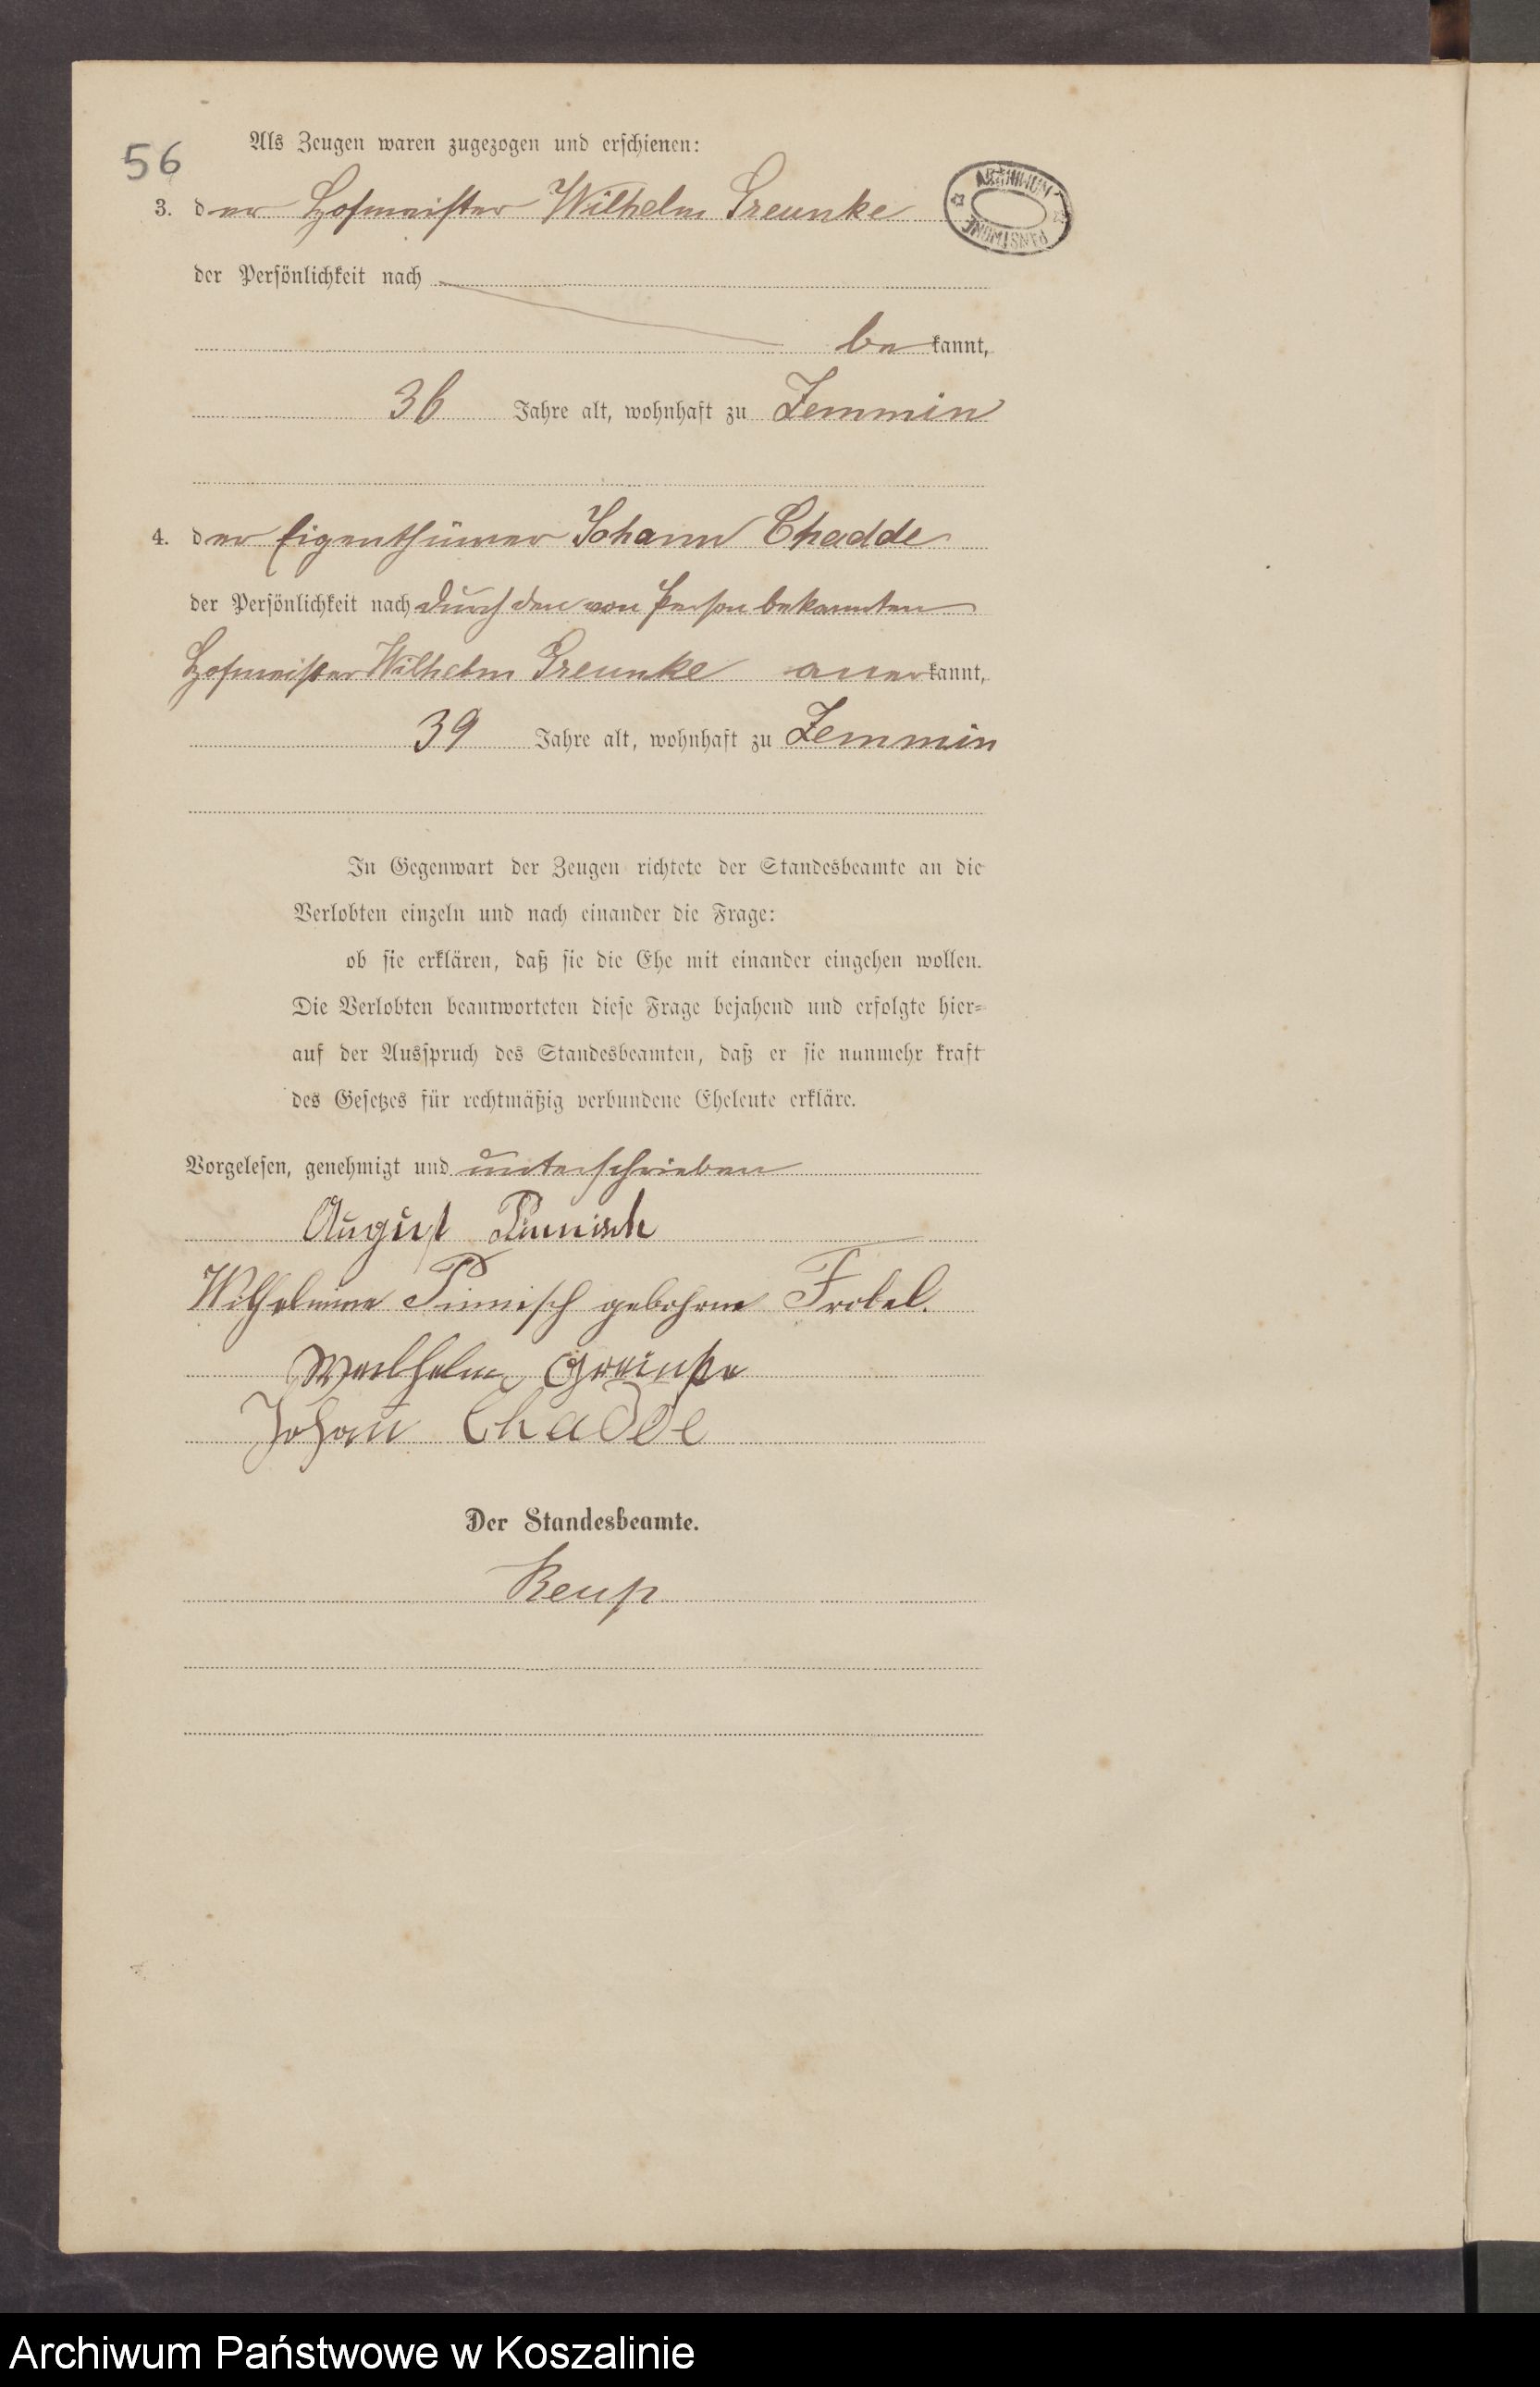 56
Als Zeugen waren zugezogen und erschienen:
3. der Hofmeister Wilhelm Greunke
ARCHIWUM PAŃSTWOWE
der Persönlichkeit nach
be kannt,
36 Jahre alt, wohnhaft zu Zemmin
4. der Eigenthümer Johann Chadde
der Persönlichkeit nach durch den von Person bekannten
Hofmeister Wilhelm Greunke aner kannt,
39 Jahre alt, wohnhaft zu Zemmin
In Gegenwart der Zeugen richtete der Standesbeamte an die
Verlobten einzeln und nach einander die Frage:
ob sie erklären, daß sie die Ehe mit einander eingehen wollen.
Die Verlobten beantworteten diese Frage bejahend und erfolgte hier=
auf der Ausspruch des Standesbeamten, daß er sie nunmehr kraft
des Gesetzes für rechtmäßig verbundene Eheleute erkläre.
Vorgelesen, genehmigt und unterschrieben
August
Wilhelmine Pinnisch gebohrne Frobel.
Johann Chadde
Der Standesbeamte.
Archiwum Państwowe w Koszalinie